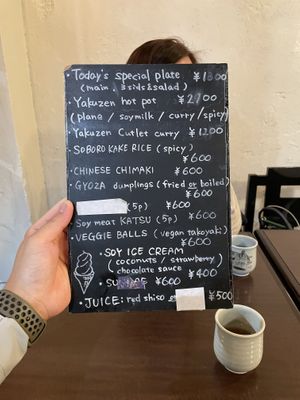 ・Today's special plate ¥1300
(main . 3 sids & salad)
・Yakuzen hot pot ¥2700
(plana / soymilk / curry / spicy)
・Yakuzen Cutlet curry ¥1200
・SOBORO KAKE RICE (spicy)
¥600
・CHINESE CHIMAKI ¥600
・GYOZA dumplings (fried or boiled)
¥600
(5p) ¥600
・Soy meat KATSU (5p) ¥600
・VEGGIE BALLS (vegan takoyaki)
¥600
・SOY ICE CREAM
(coconuts / strawberry
chocolate sauce ¥400
¥600
・JUICE: red shiso or ¥500